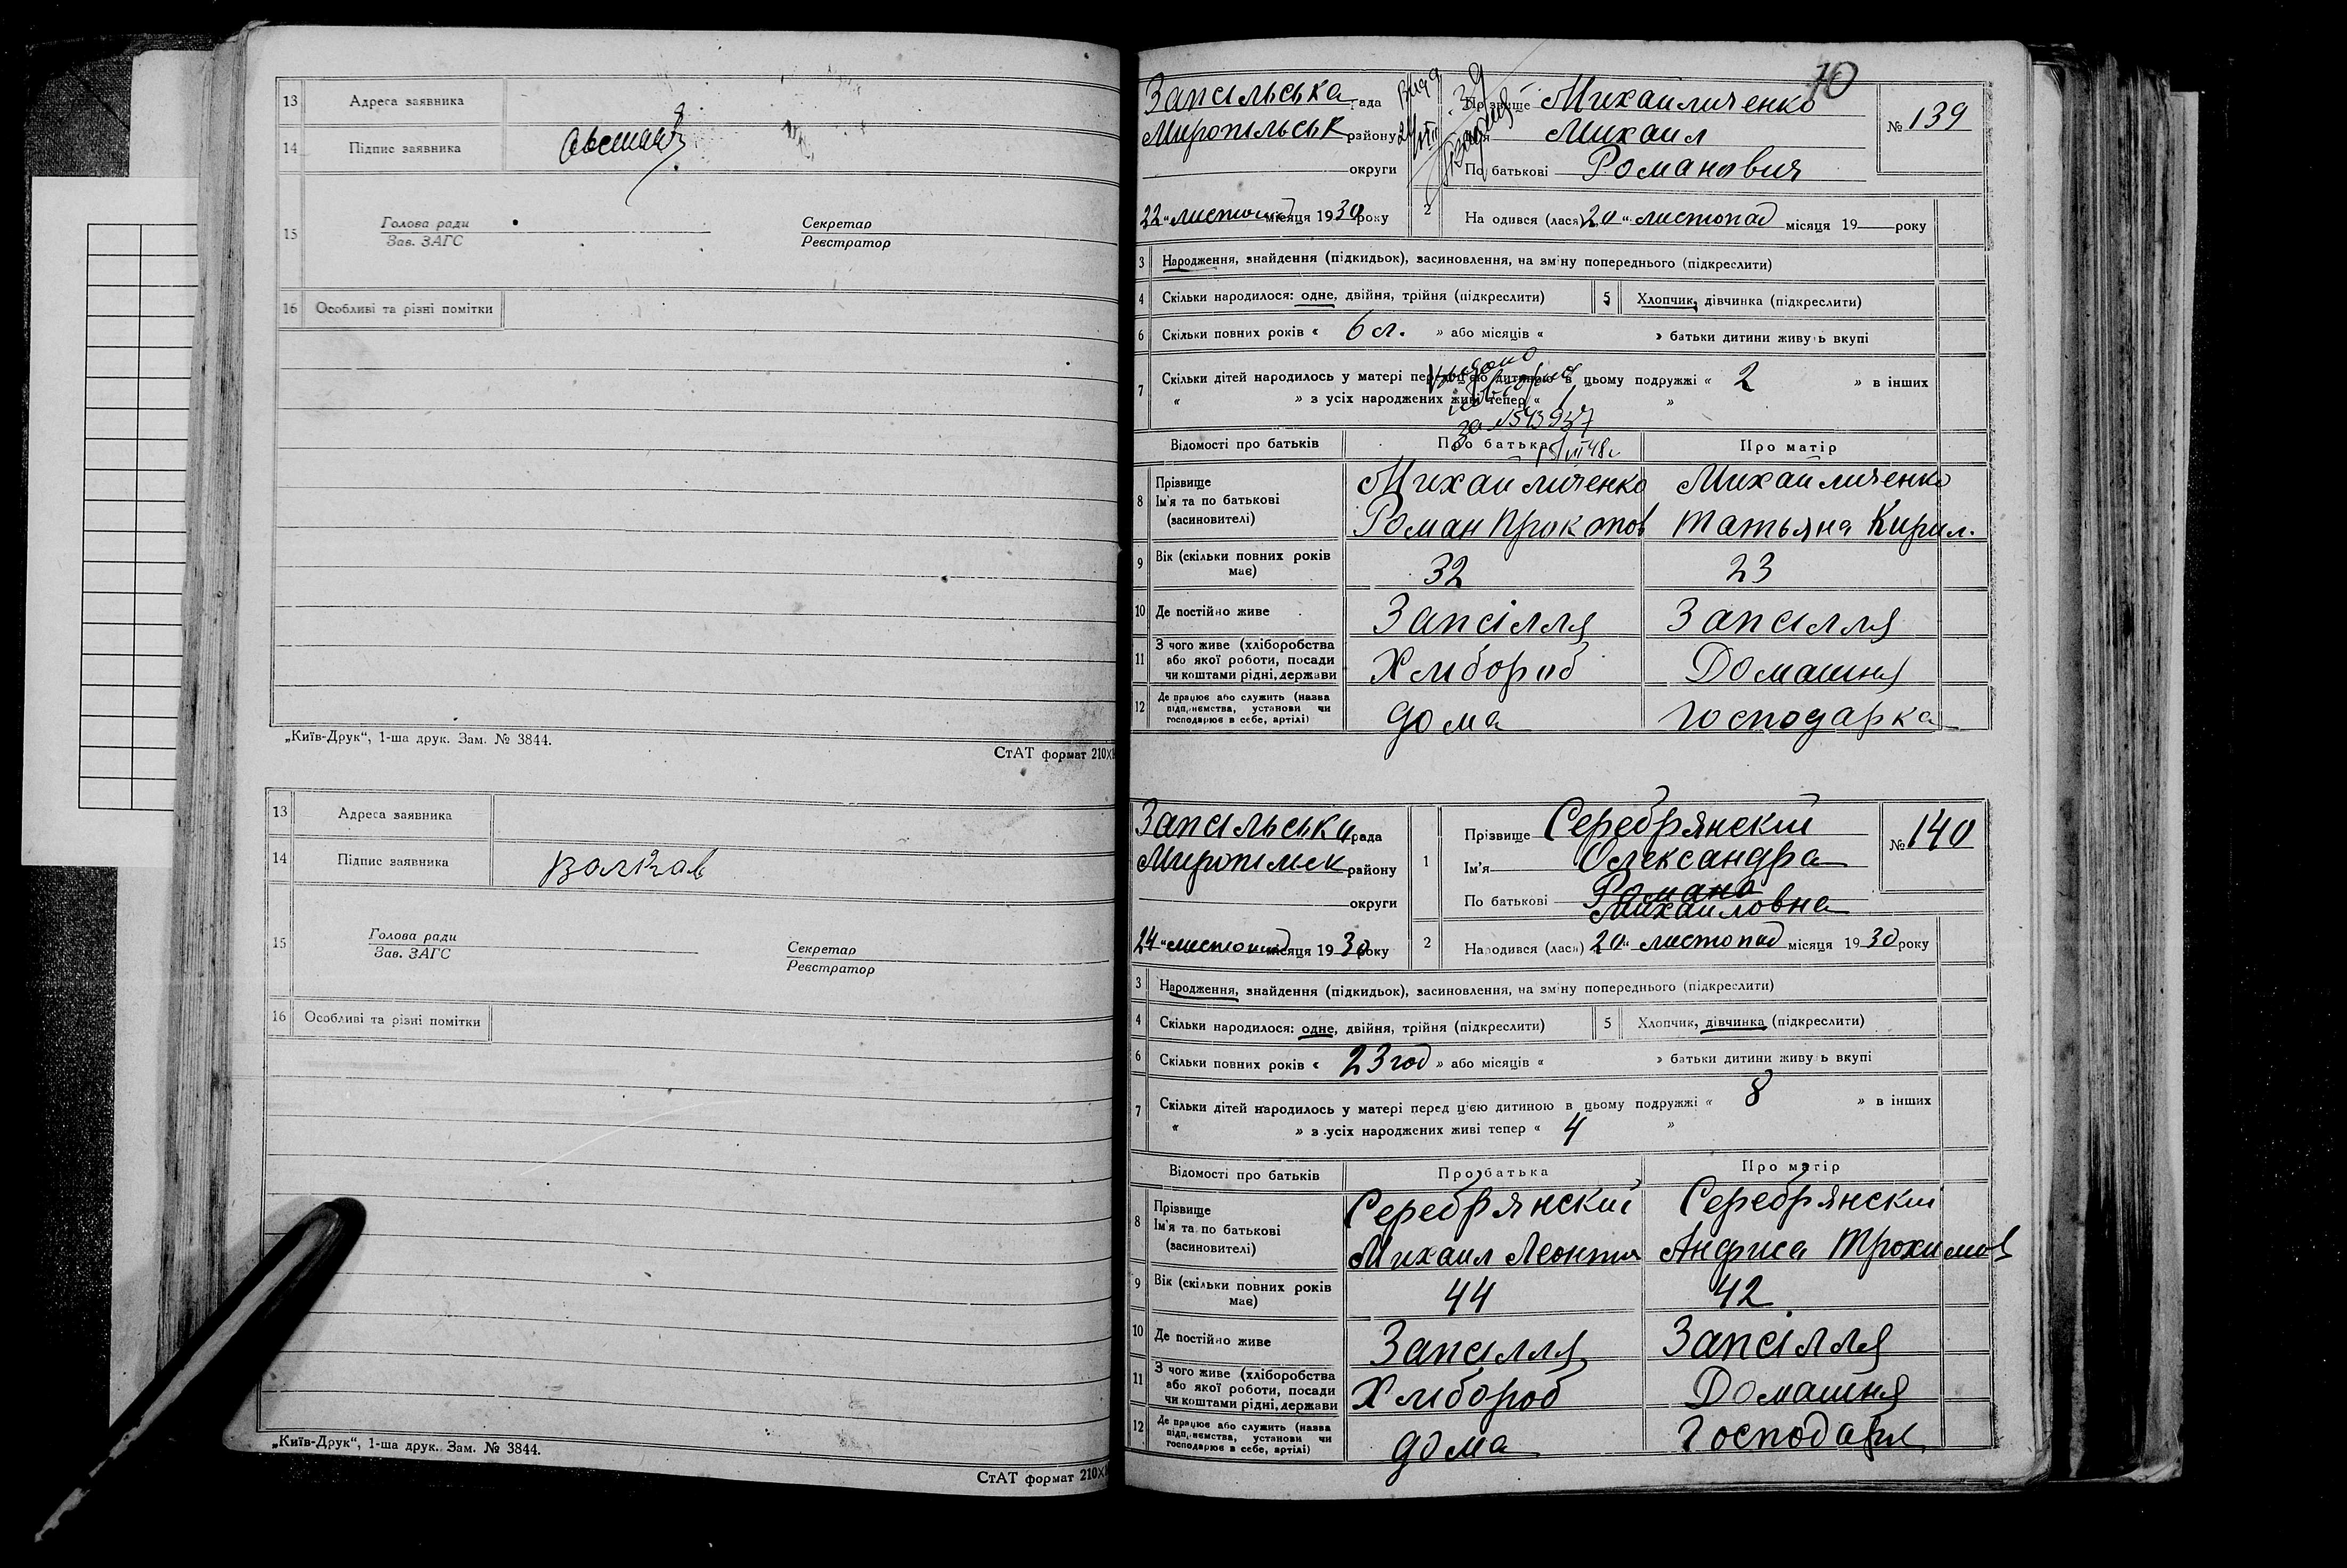 13 Адреса заявника
14 Підпис заявника
15 Голова ради Секретар
Зав. ЗАГС Реєстратор
16 Особливі та різні помітки
„Київ-Друк“, 1-ша друк. Зам. № 3844.
СтАТ формат 210×
13 Адреса заявника
14 Підпис заявника Волков
15 Голова ради Секретар
Зав. ЗАГС Реєстратор
16 Особливі та різні помітки
„Київ-Друк“, 1-ша друк. Зам. № 3844.
СтАТ формат 210×
10
Запсільська рада Прізвище Михаиличенко № 139
Миропільськ району Михаил
округи По батькові Романович
22 „листопад місяця 1930 року 2 На одився (лася) 20 „ листопад місяця 19 року
3 Народження, знайдення (підкидьок), засиновлення, на зміну попереднього (підкреслити)
4 Скільки народилося: одне, двійня, трійня (підкреслити) 5 Хлопчик, дівчинка (підкреслити)
6 Скільки повних років « 6 л. » або місяців « » батьки дитини живуть вкупі
7 Скільки дітей народилось у матері перед цією дитиною в цьому подружжі « 2 » в інших
« » з усіх народжених живі тепер « 1 »
Відомості про батьків Про батька Про матір
8 Прізвище Михаиличенко Михаиличенко
Ім'я та по батькові Роман Прокопов Татьяна Кирил.
(засиновителі)
9 Вік (скільки повних років має) 32 23
10 Де постійно живе Запсілля Запсілля
11 З чого живе (хліборобства Хлібороб Домашня
або якої роботи, посади
чи коштами рідні, держави
12 Де працює або служить (назва дома господарка
підприємства, установи чи
господарює в себе, артілі)
Запсільська рада 1 Прізвище Серебрянский № 140
Миропільск району Ім'я Олександра
округи По батькові Романо
Михаиловна
24 „листопад місяця 1930 року 2 Народився (лася) 20 „ листопад місяця 1930 року
3 Народження, знайдення (підкидьок), засиновлення, на зміну попереднього (підкреслити)
4 Скільки народилося: одне, двійня, трійня (підкреслити) 5 Хлопчик, дівчинка (підкреслити)
6 Скільки повних років « 23 год » або місяців « » батьки дитини живуть вкупі
7 Скільки дітей народилось у матері перед цією дитиною в цьому подружжі « 8 » в інших
« » з усіх народжених живі тепер « 4 »
Відомості про батьків Про батька Про матір
8 Прізвище Серебрянский Серебрянский
Ім'я та по батькові Михаил Леонтія Анфиса Трохимов
(засиновителі)
9 Вік (скільки повних років має) 44 42
10 Де постійно живе Запсілля Запсілля
11 З чого живе (хліборобства Хлібороб Домашня
або якої роботи, посади
чи коштами рідні, держави
12 Де працює або служить (назва дома Господарк
підприємства, установи чи
господарює в себе, артілі)